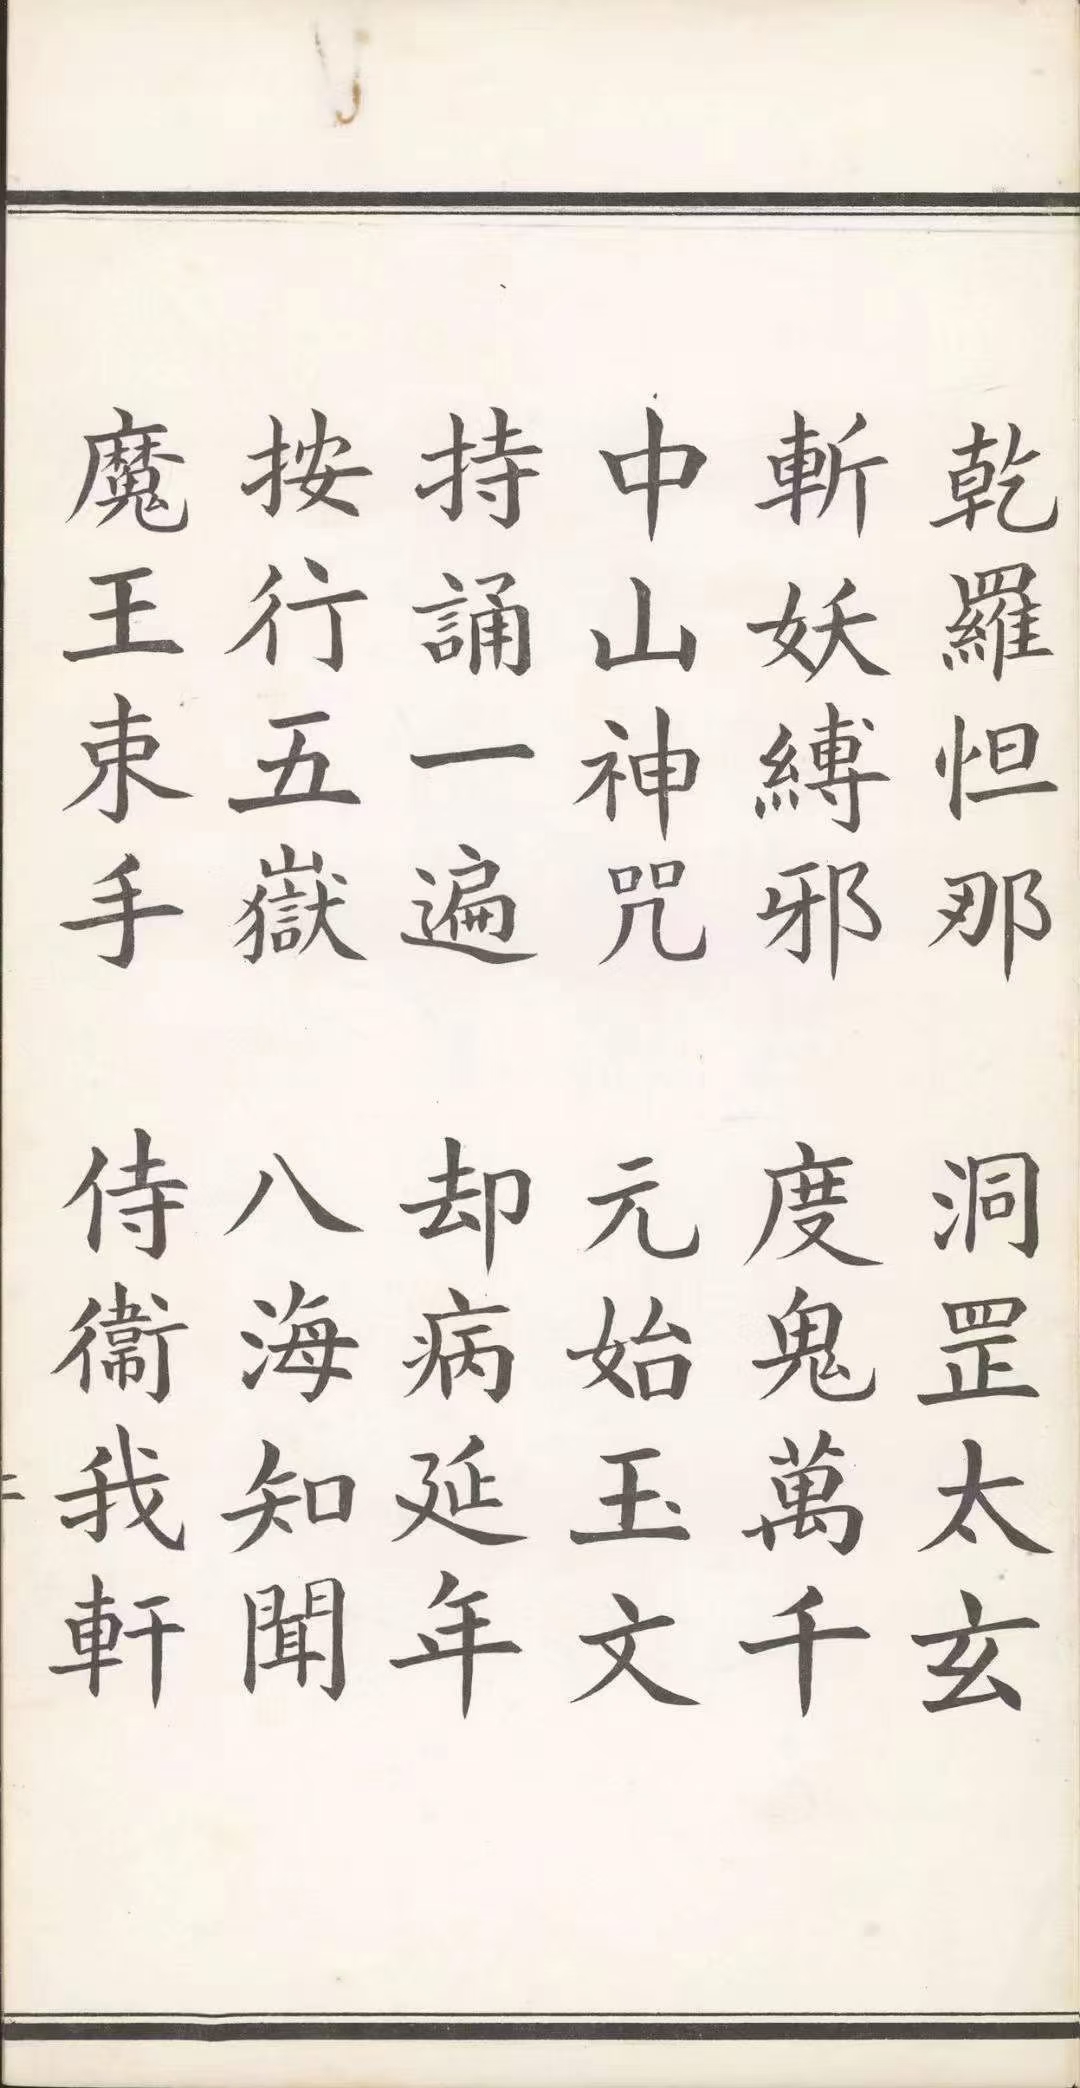 乾羅怛那 洞罡太玄
斬妖縛邪 度鬼萬千
中山神咒 元始玉文
持誦一遍 却病延年
按行五嶽 八海知聞
魔王束手 侍衞我軒